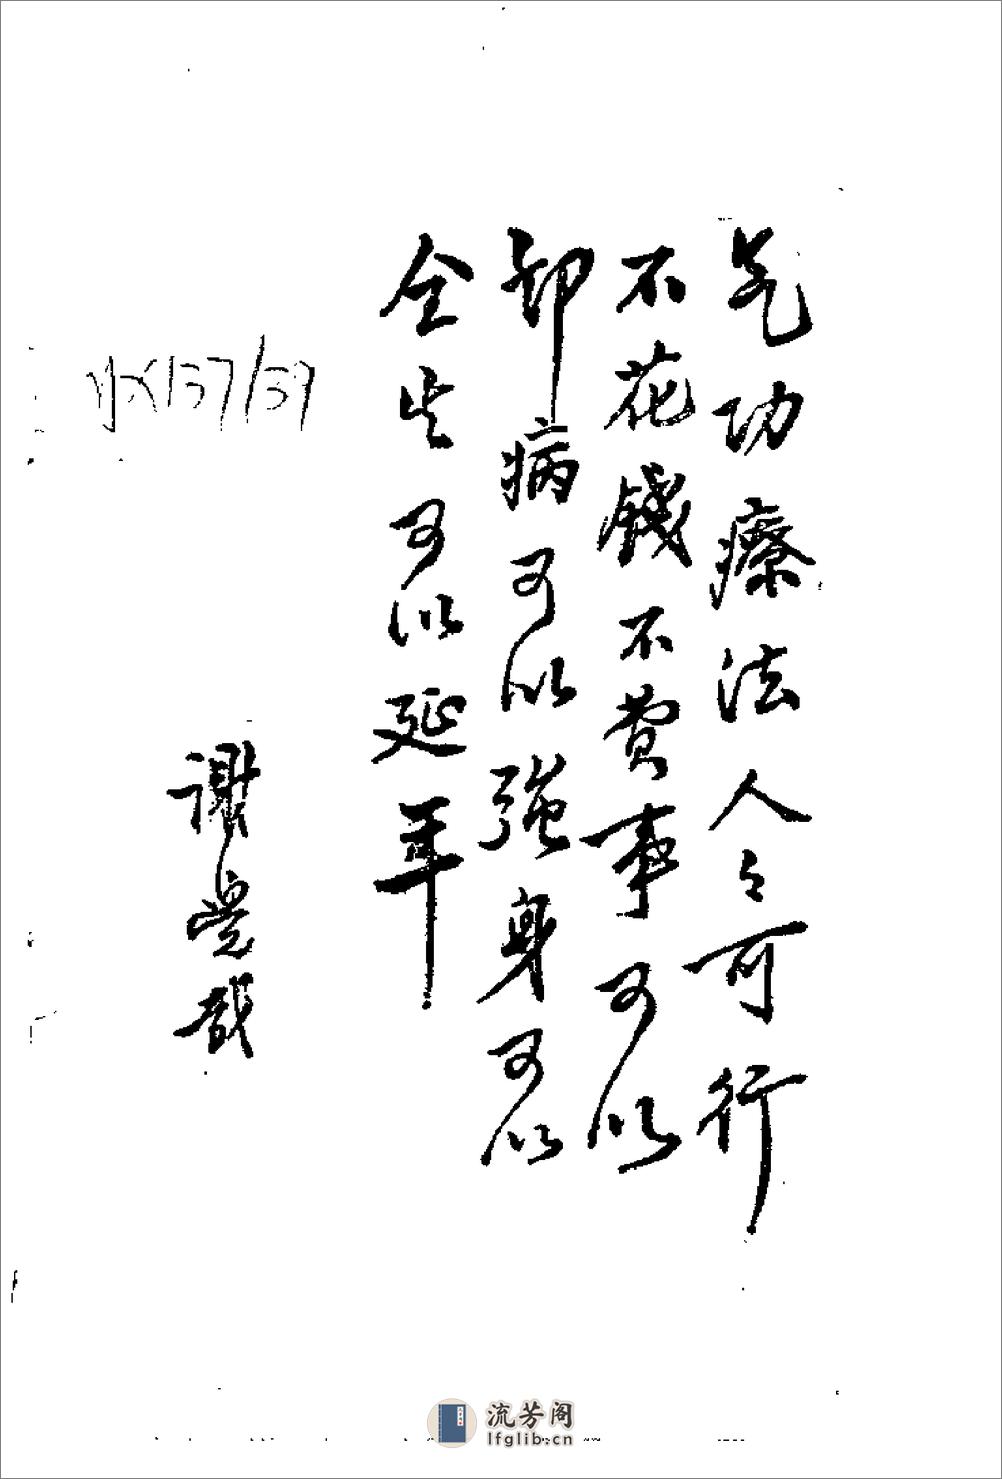 气功療法人々可行
不花錢不費事可以
却病可以強身可以
全生可以延年
謝覺哉
137/59
流芳阁
lfglib.cn